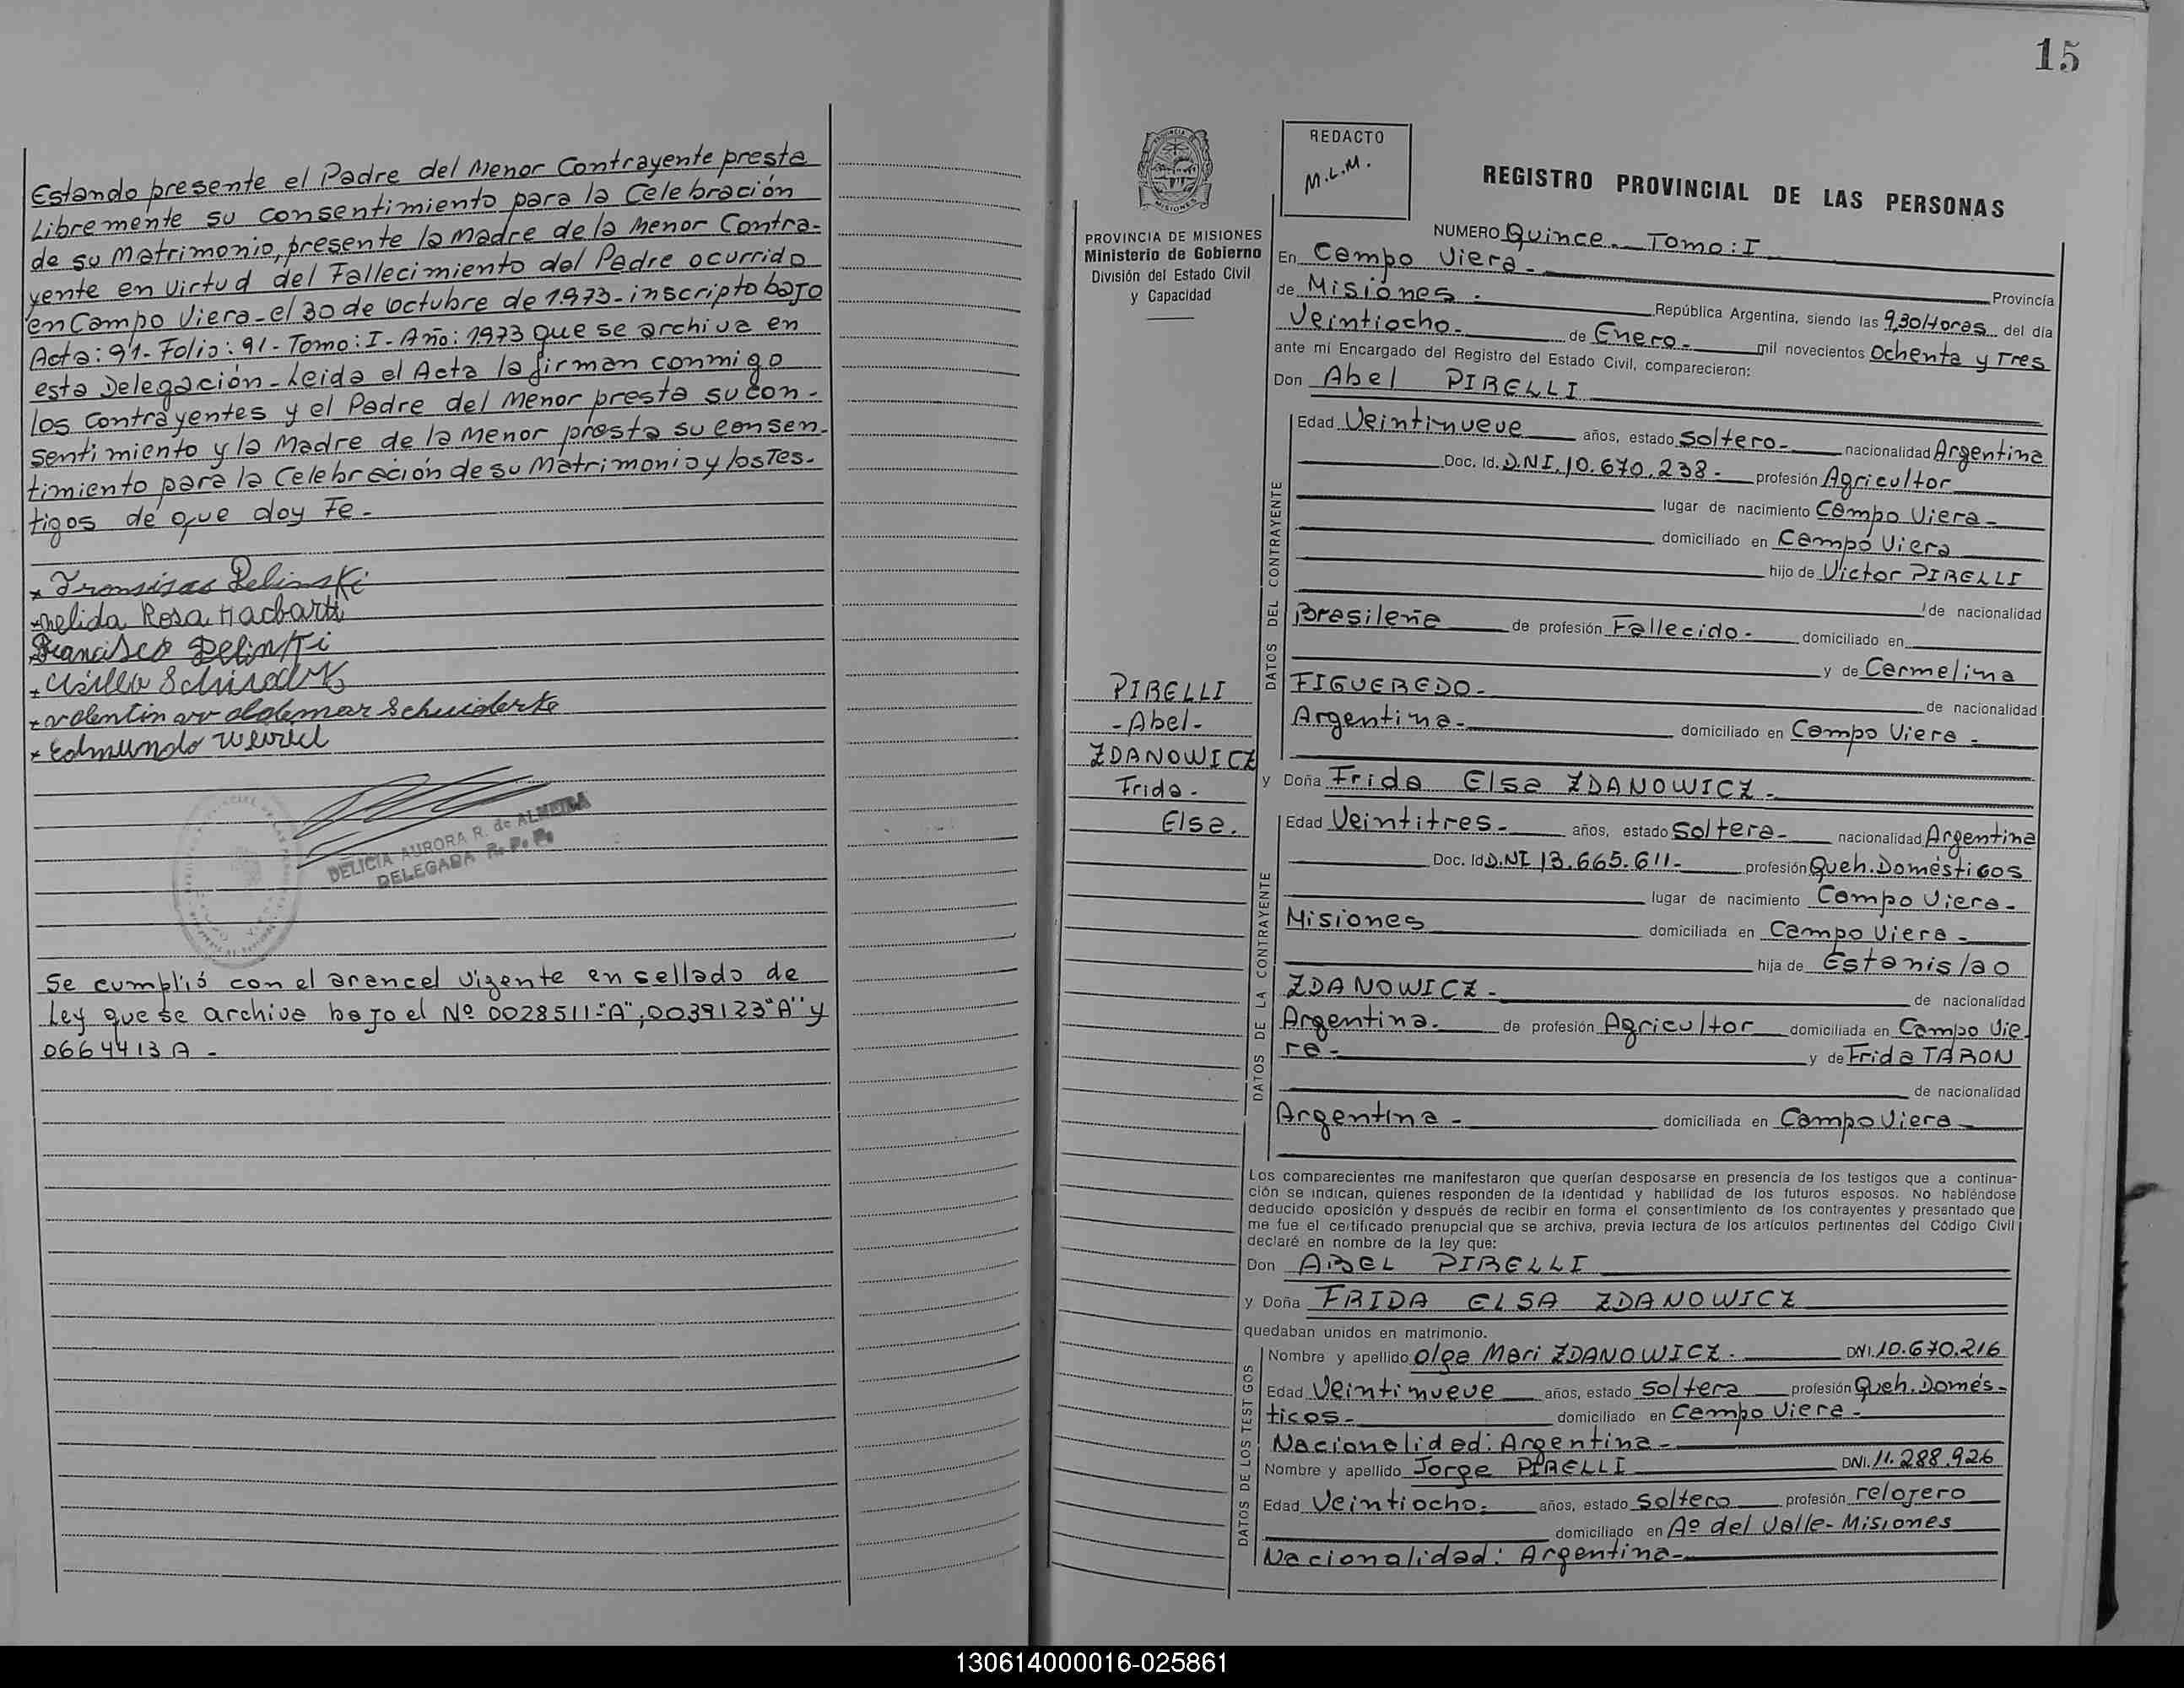 Estando presente el Padre del Menor Contrayente presta
Libremente su consentimiento para la Celebración
de su Matrimonio, presente la madre de la Menor Contra-
yente en virtud del Fallecimiento del Padre ocurrido
en Campo Viera - el 30 de octubre de 1.973 - inscripto bajo
Acta: 91 - Folio: 91 - Tomo: I - Año: 1.973 que se archiva en
esta Delegación - Leida el Acta la firman conmigo
los Contrayentes y el Padre del Menor presta su con-
sentimiento y la Madre de la Menor presta su consen-
timiento para la Celebración de su Matrimonio y los Tes-
tigos de que doy Fe.-
Nelida Rosa
Francisco
Valentin
Edmundo
DELICIA AURORA R. de ALMEIRA
DELEGADA R. P. P.
Se cumplió con el arancel vigente en sellado de
Ley que se archiva bajo el Nº 0028511-"A"; 0039123"A" y
0664413 A -
15
REDACTO
M.L.M.
REGISTRO PROVINCIAL DE LAS PERSONAS
PROVINCIA DE MISIONES
Ministerio de Gobierno
División del Estado Civil
y Capacidad
NUMERO Quince.- Tomo: I
En Campo Viera - Provincia
de Misiones - República Argentina, siendo las 9,30 Horas del día
Veintiocho - de Enero - mil novecientos Ochenta y Tres
ante mi Encargado del Registro del Estado Civil, comparecieron:
Don Abel PIRELLI
PIRELLI
- Abel -
ZDANOWICZ
Frida -
Elsa.
DATOS DEL CONTRAYENTE
Edad Veintinueve años, estado Soltero - nacionalidad Argentina
Doc. Id. D.N.I. 10.670.238 - profesión Agricultor
lugar de nacimiento Campo Viera -
domiciliado en Campo Viera
hijo de Victor PIRELLI
de nacionalidad
Brasileña de profesión Fallecido - domiciliado en
y de Carmelina
FIGUEREDO - de nacionalidad
Argentina - domiciliado en Campo Viera -
y Doña Frida Elsa ZDANOWICZ -
DATOS DE LA CONTRAYENTE
Edad Veintitres - años, estado Soltera - nacionalidad Argentina
Doc. Id D.NI 13.665.611 - profesión Queh. Domésticos
lugar de nacimiento Campo Viera -
Misiones domiciliada en Campo Viera -
hija de Estanislao
ZDANOWICZ - de nacionalidad
Argentina - de profesión Agricultor domiciliada en Campo Vie-
ra - y de Frida TARON
de nacionalidad
Argentina - domiciliada en Campo Viera -
Los comparecientes me manifestaron que querían desposarse en presencia de los testigos que a continua-
ción se indican, quienes responden de la identidad y habilidad de los futuros esposos. No habiéndose
deducido oposición y después de recibir en forma el consentimiento de los contrayentes y presentado que
me fue el certificado prenupcial que se archiva, previa lectura de los artículos pertinentes del Código Civil
declaré en nombre de la ley que:
Don ABEL PIRELLI
y Doña FRIDA ELSA ZDANOWICZ
quedaban unidos en matrimonio.
DATOS DE LOS TESTIGOS
Nombre y apellido Olga Mari ZDANOWICZ - DNI. 10.670.216
Edad Veintinueve años, estado Soltera profesión Queh. Domés-
ticos - domiciliado en Campo Viera -
Nacionalidad: Argentina -
Nombre y apellido Jorge PIRELLI DNI. 11.288.926
Edad Veintiocho - años, estado Soltero profesión relojero
domiciliado en Aº del Valle - Misiones
Nacionalidad: Argentina -
130614000016-025861